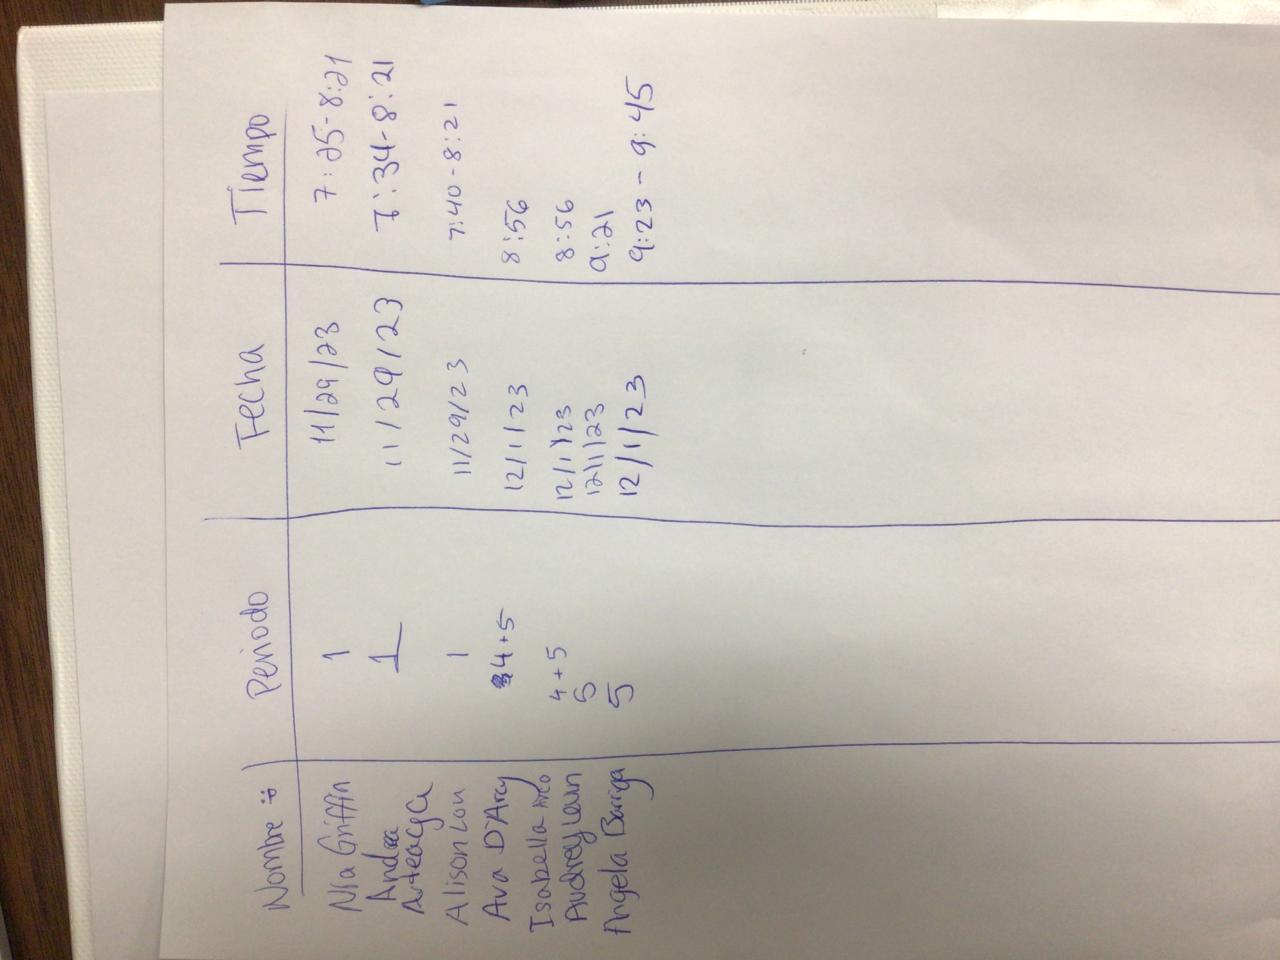 Nombre :) Periodo Fecha Tiempo
Nia Griffin 1 11/29/23 7:25-8:21
Andrea 1 11/29/23 7:34-8:21
Arteaga
Alison Lou 1 11/29/23 7:40-8:21
Ava D'Arcy 4+5 12/1/23 8:56
Isabella Arco 4+5 12/1/23 8:56
Audrey 5 12/1/23 9:21
Angela Barriga 5 12/1/23 9:23-9:45